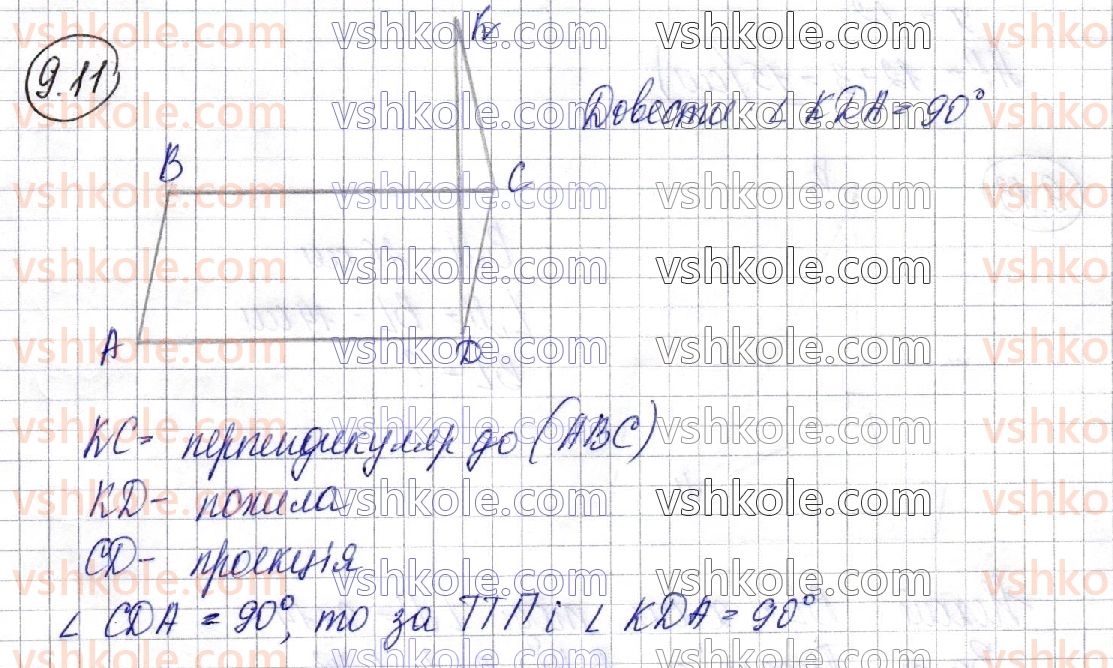 9.11
K
Довести ∠ KDA = 90°
B
C
A
D
KC - перпендикуляр до (ABC)
KD - похила
CD - проекція
∠ CDA = 90°, то за ТТП і ∠ KDA = 90°
vshkole.com